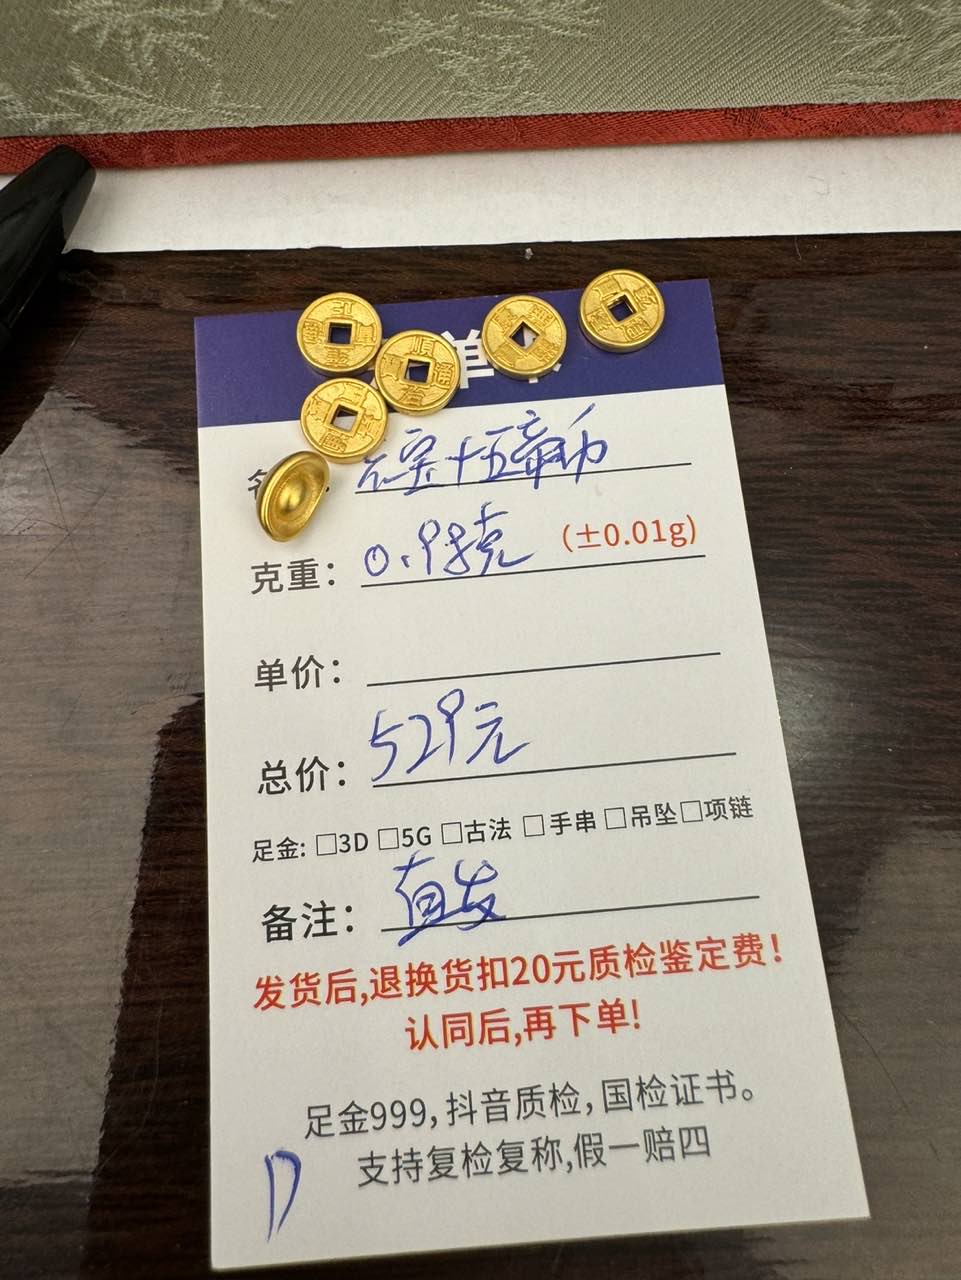 单
元宝十五帝币
克重： 0.98克 (±0.01g)
单价：
总价： 529元
足金: □3D □5G □古法 □手串 □吊坠 □项链
备注： 直发
发货后,退换货扣20元质检鉴定费！
认同后,再下单!
足金999，抖音质检，国检证书。
支持复检复称,假一赔四
順治通寶